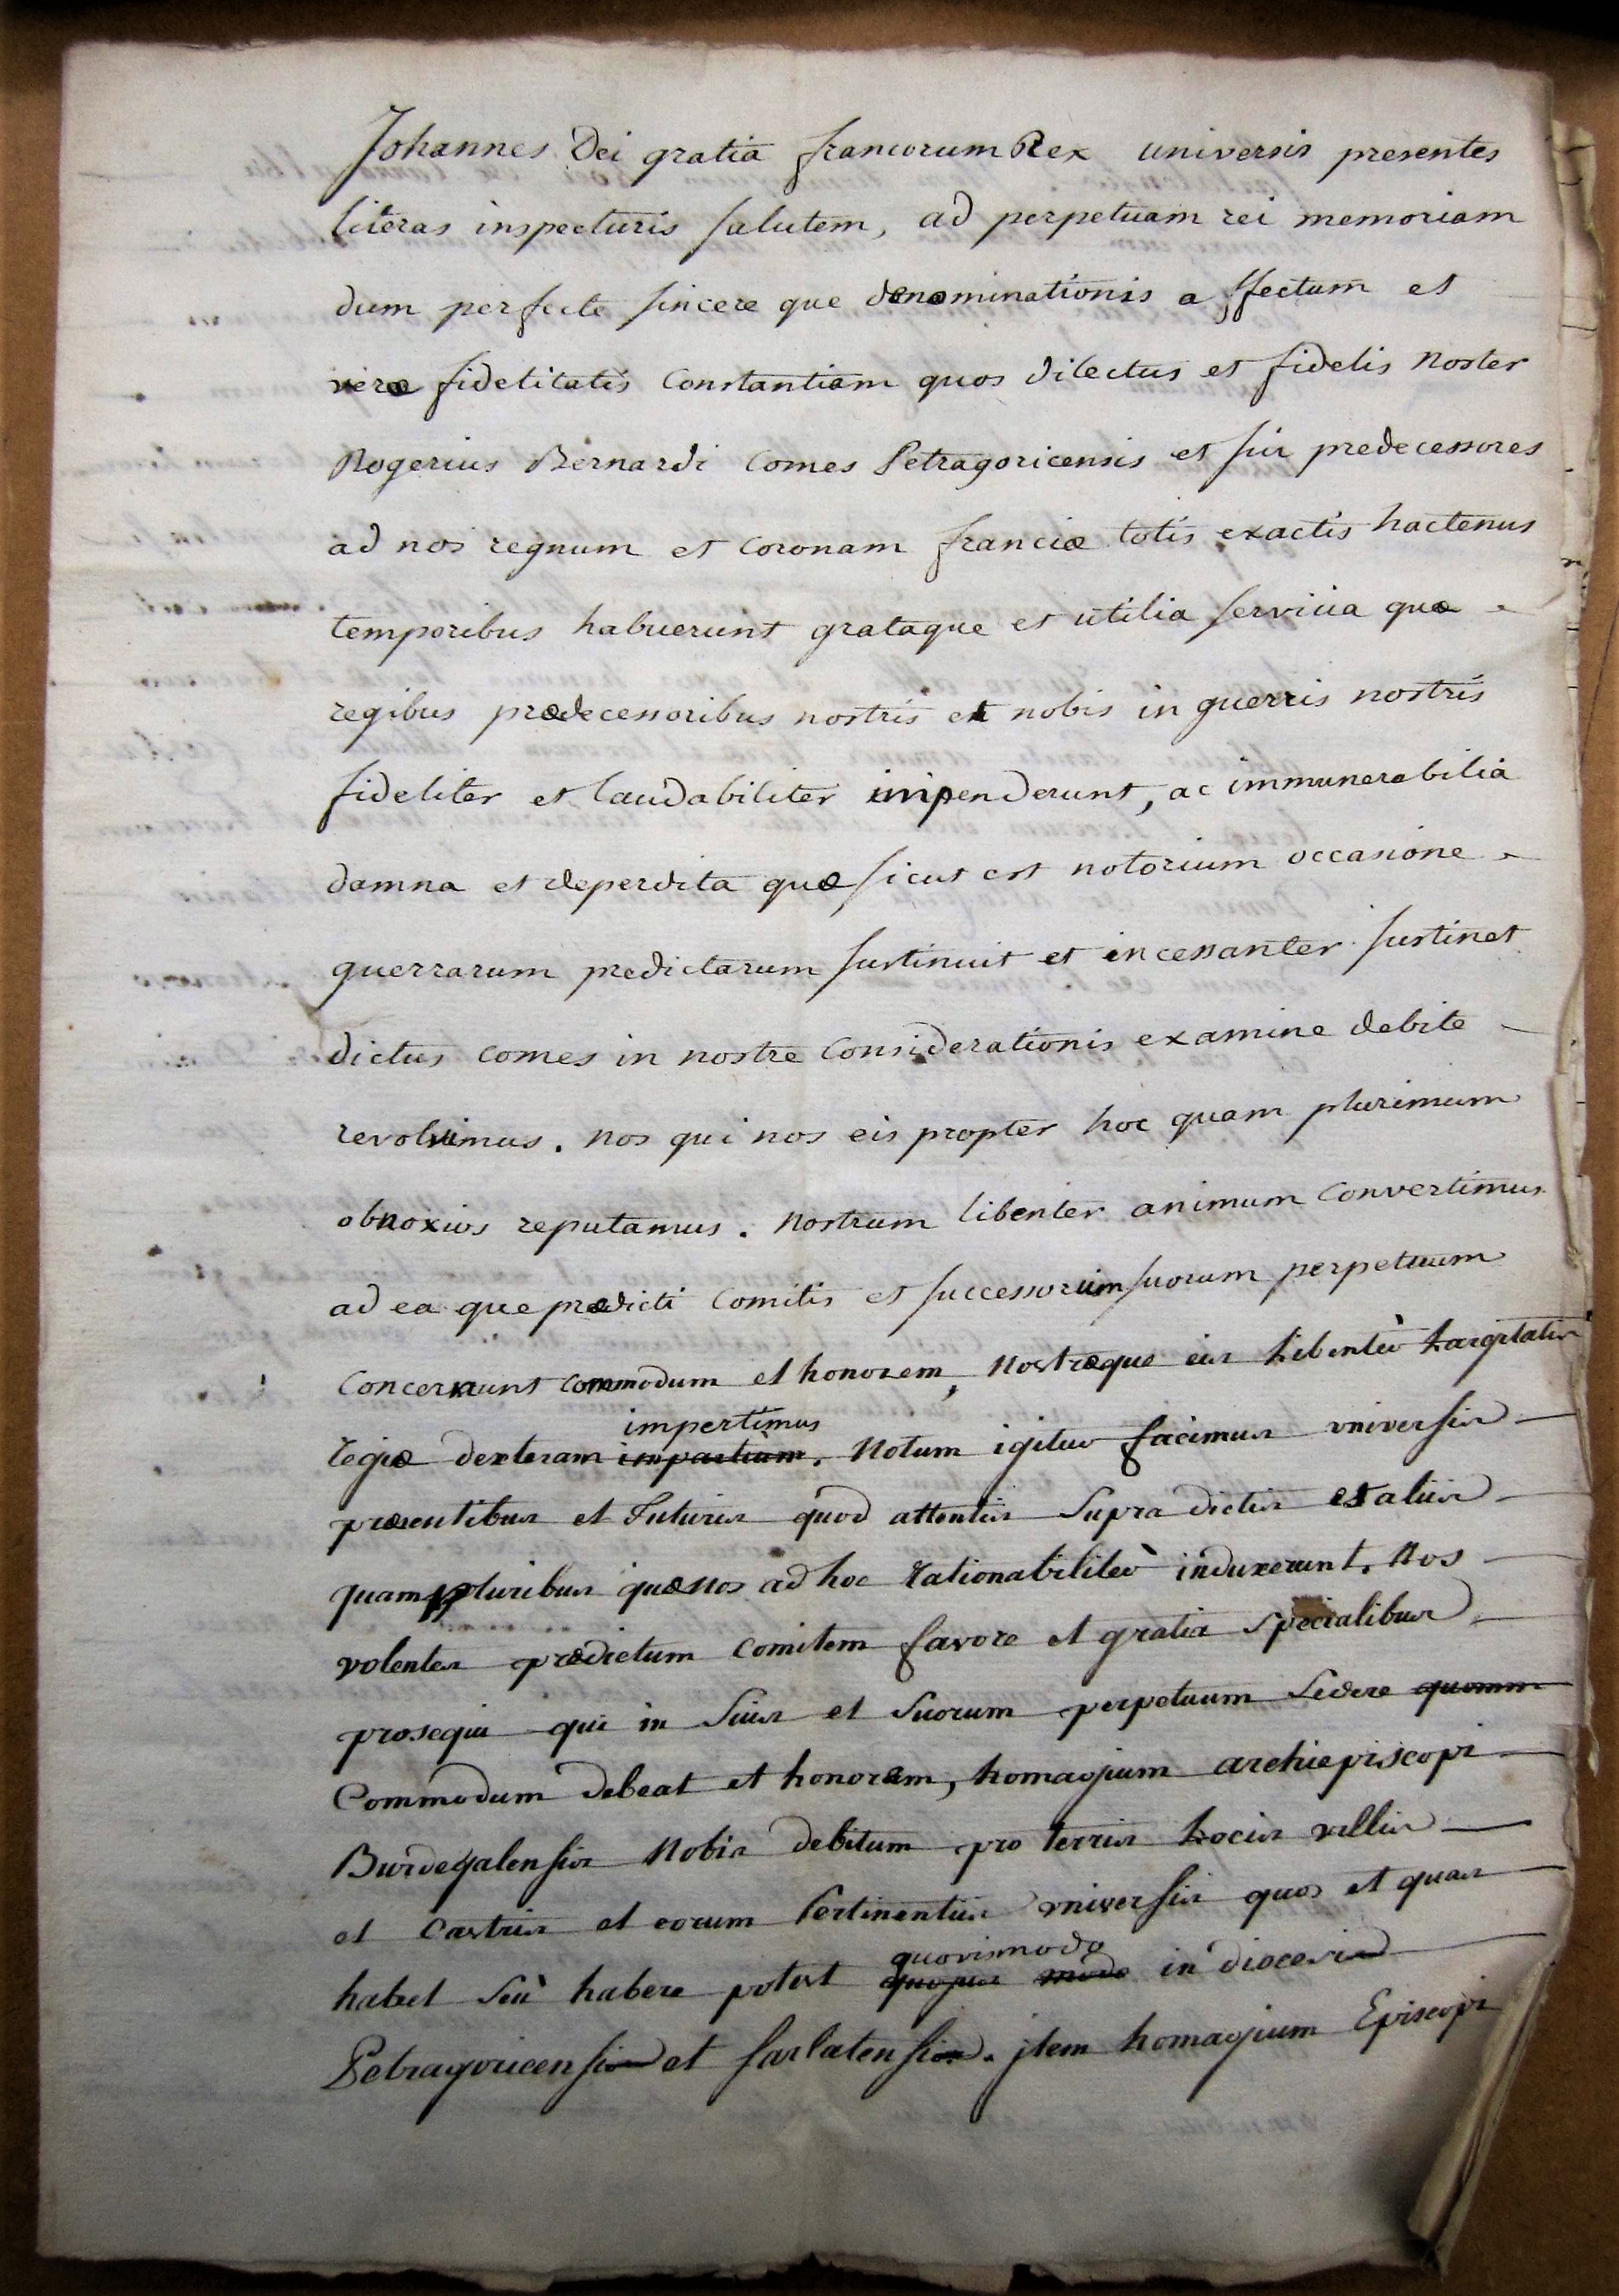 Johannes Dei gratia francorum Rex universis presentes
literas inspecturis salutem, ad perpetuam rei memoriam
dum perfecte sincere que denominationis affectum et
veræ fidelitatis Constantiam quos dilectus et fidelis noster
Rogerius Bernardi Comes Petragoricensis et sui predecessores
ad nos regnum et Coronam franciæ totis exactis hactenus
temporibus habuerunt grataque et utilia servicia quæ
regibus prædecessoribus nostris et nobis in guerris nostris
fideliter et laudabiliter impenderunt, ac immunerabilia
damna et deperdita quæ sicut est notorium occasione
guerrarum predictarum sustinuit et incessanter sustinet
dictus comes in nostre Considerationis examine debite
revolvimus. nos qui nos eis propter hoc quam plurimum
obnoxios reputamus. nostrum libenter animum Convertimus
ad ea que prædicti Comitis et successorum suorum perpetuum
Concernunt commodum et honorem, nostræque eis Libenter Largitatis
impertimus
regiæ dexteram impartium. Notum igitur facimus universis
præsentibus et futuris quod attentis supra dictis et aliis
quampluribus quæ nos ad hoc rationabiliter induxerunt. Nos
volentes prædictum Comitem favore et gratia specialibus
prosequi qui in suis et suorum perpetuum sedere quomm
Commodum debeat et honorem, homagium archiepiscopi
Burdegalensis Nobis debitum pro terris Locis villis
et Castris et eorum Pertinentiis universis quos et quas
quovismodo
habet seù habere potest quopus modo in diocesis
Petragoricensis et sarlatensis. jtem homagium Episcopi